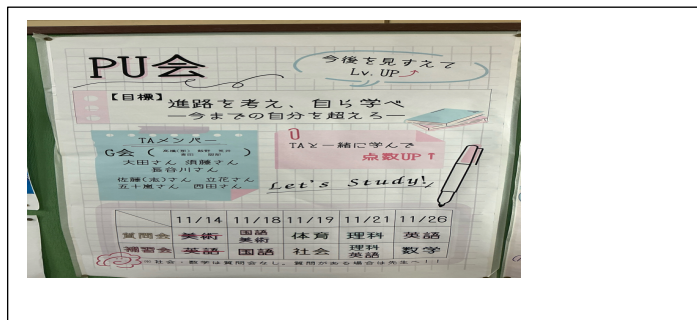 PU会
今後を見すえて
Lv. UP
【目標】
進路を考え、自ら学べ
―今までの自分を超えろ―
TAメンバー
G会（ ）
大田さん 須藤さん
長谷川さん
佐藤(志)さん 立花さん
五十嵐さん 西田さん
TAと一緒に学んで
点数UP↑
Let's Study!!
11/14 11/18 11/19 11/21 11/26
質問会 美術 国語 美術 体育 理科 英語
補習会 英語 国語 社会 理科 英語 数学
※社会・数学は質問会なし。質問がある場合は先生へ!!